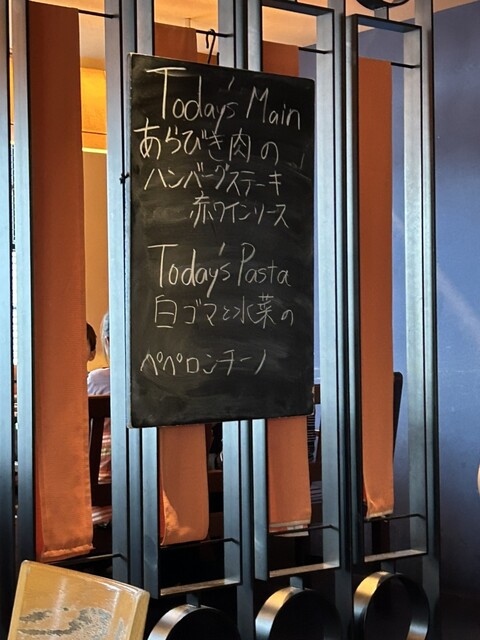 Today's Main
あらびき肉の
ハンバーグステーキ
赤ワインソース
Today's Pasta
白ゴマと水菜の
ペペロンチーノ